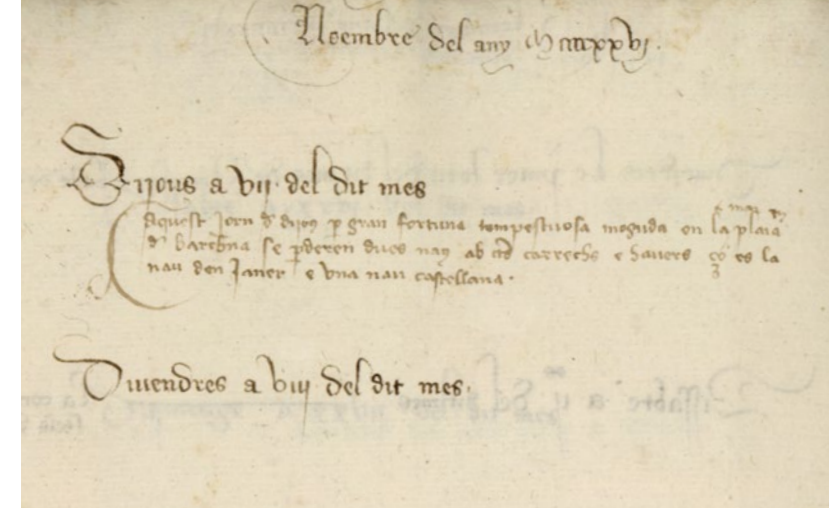 Noembre del any Mccccxxvi.
Dijous a vii del dit mes
Aquest jorn d dijos p gran fortuna tempestuosa moguda en la plaia
d Barchna se pderen dues naus ab carrechs e havers ço es la
nau den Janer e vna nau castellana.
Diuendres a viii del dit mes.